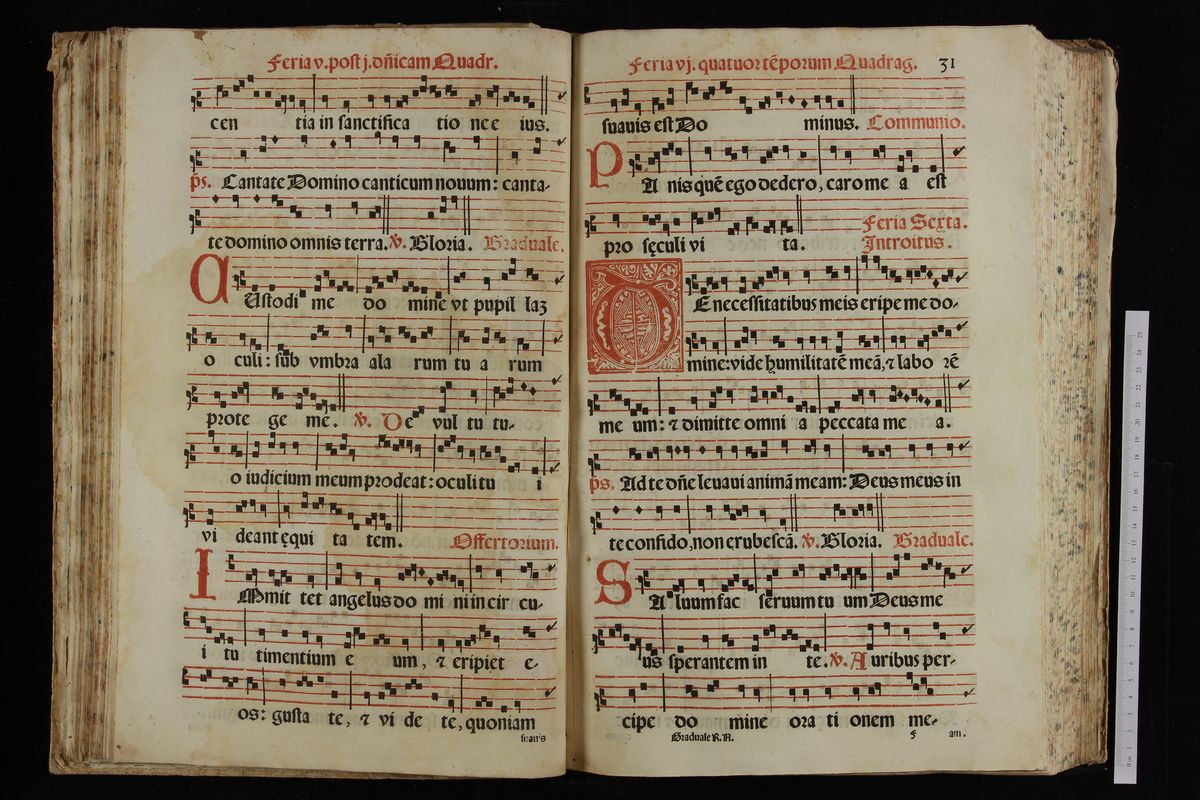 Feria v. post j. dñicam Quadr.
cen tia in sanctifica tio ne e ius.
ps. Cantate Domino canticum nouum: canta-
te domino omnis terra. ℣. Gloria. Graduale.
CUstodi me do mine vt pupil laꝫ
o culi: sub vmbra ala rum tu a rum
prote ge me. ℣. De vul tu tu-
o iudicium meum prodeat: oculi tu i
vi deant ęqui ta tem. Offertorium.
IMmit tet angelus do mi ni in cir cu-
i tu timentium e um, ⁊ eripiet e-
os: gusta te, ⁊ vi de te, quoniam
suauis
Feria vj. quatuor tẽporum Quadrag. 31
suauis est Do minus. Communio.
PA nis quẽ ego dedero, caro me a est
pro sęculi vi ta. Feria Sexta.
Introitus.
DE necessitatibus meis eripe me do-
mine: vide humilitatẽ meã, ⁊ labo rẽ
me um: ⁊ dimitte omni a peccata me a.
ps. Ad te dñe leuaui animã meam: Deus meus in
te confido, non erubescã. ℣. Gloria. Graduale.
SA luum fac seruum tu um Deus me
us sperantem in te. ℣. Auribus per-
cipe do mine ora ti onem me-
Graduale R.A. f am.